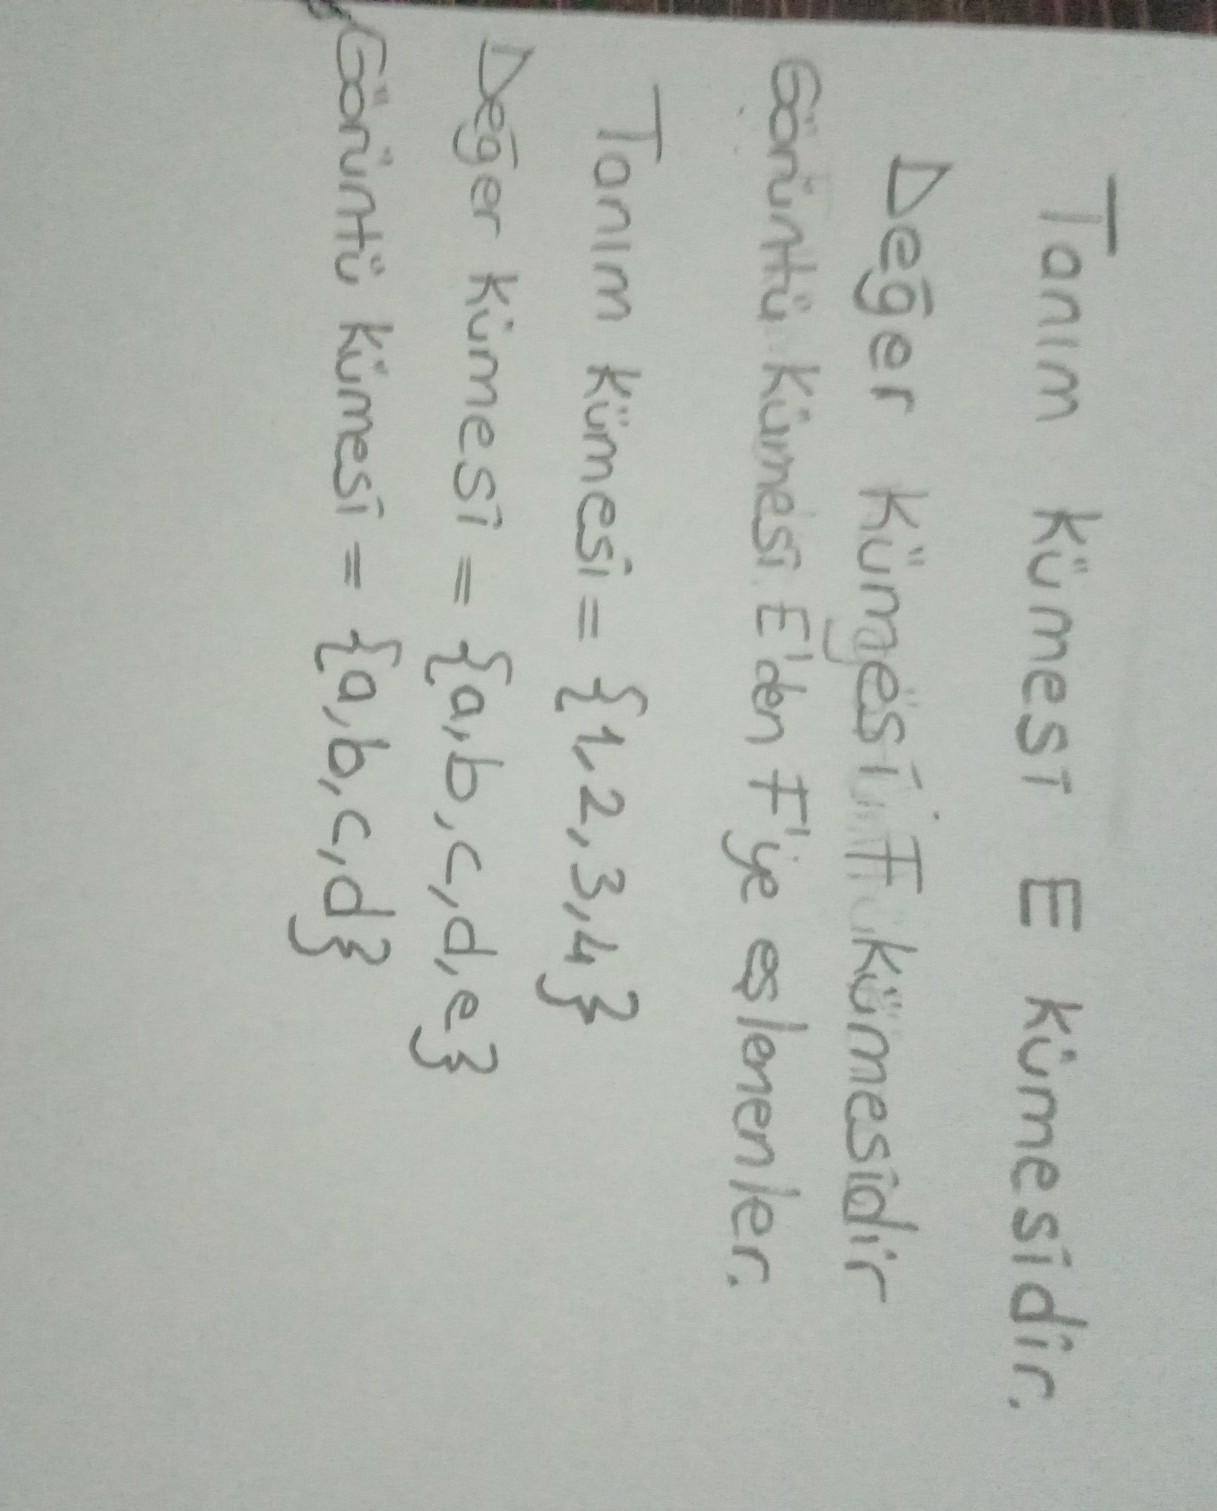 Tanım kümesi E kümesidir.
Değer kümesi F kümesidir
Görüntü kümesi E'den F'ye eşlenenler.
Tanım kümesi = {1,2,3,4}
Değer kümesi = {a,b,c,d,e}
Görüntü kümesi = {a,b,c,d}